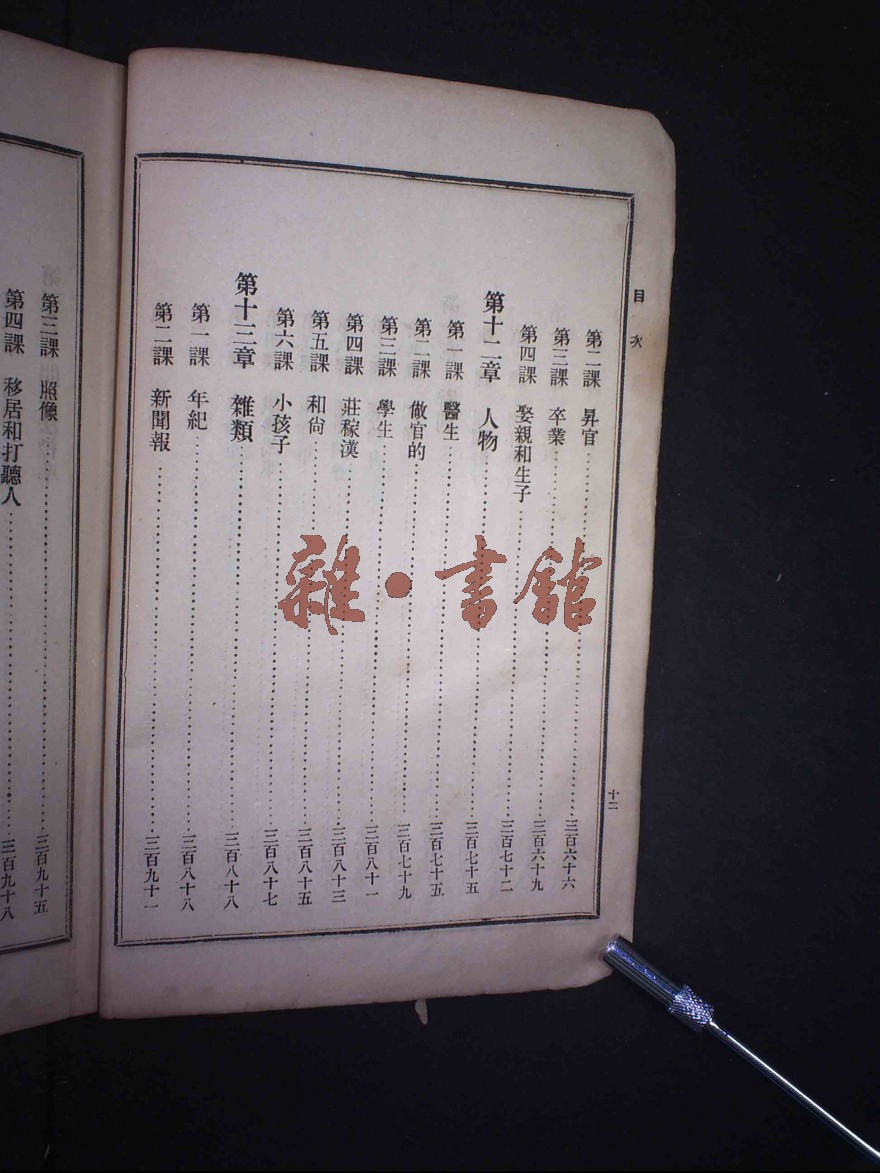 目次
第二課　昇官……三百六十六
第三課　卒業……三百六十九
第四課　娶親和生子……三百七十二
第十二章　人物……三百七十五
第一課　醫生……三百七十五
第二課　做官的……三百七十九
第三課　學生……三百八十一
第四課　莊稼漢……三百八十三
第五課　和尙……三百八十五
第六課　小孩子……三百八十七
第十三章　雜類……三百八十八
第一課　年紀……三百八十八
第二課　新聞報……三百九十一
十二
第三課　照像……三百九十五
第四課　移居和打聽人……三百九十八
雜·書館